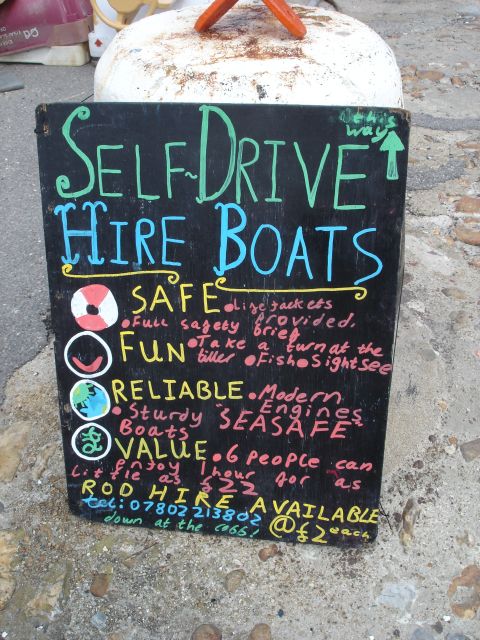 this
way
SELF~DRIVE
HIRE BOATS
SAFE •Lifejackets
•Full safety provided.
brief
FUN •Take a turn at the
tiller •Fish •Sightsee
RELIABLE •Modern
Engines
•Sturdy "SEASAFE"
Boats
VALUE •6 people can
enjoy 1 hour for as
little as £22
ROD HIRE AVAILABLE
@£2 each
tel: 07802213802
down at the cobb!